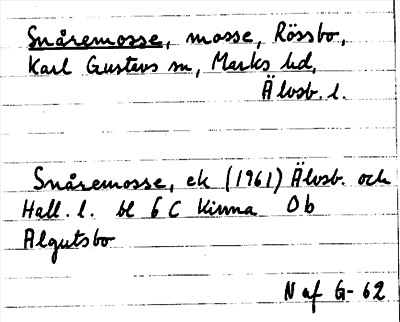 Snåremosse, mosse, Rössbo,
Karl Gustavs sn, Marks hd,
Älvsb. l.
Snåremosse, ek (1961) Älvsb. och
Hall. l. bl 6 C Kinna Ob
Algutsbo
N af G- 62